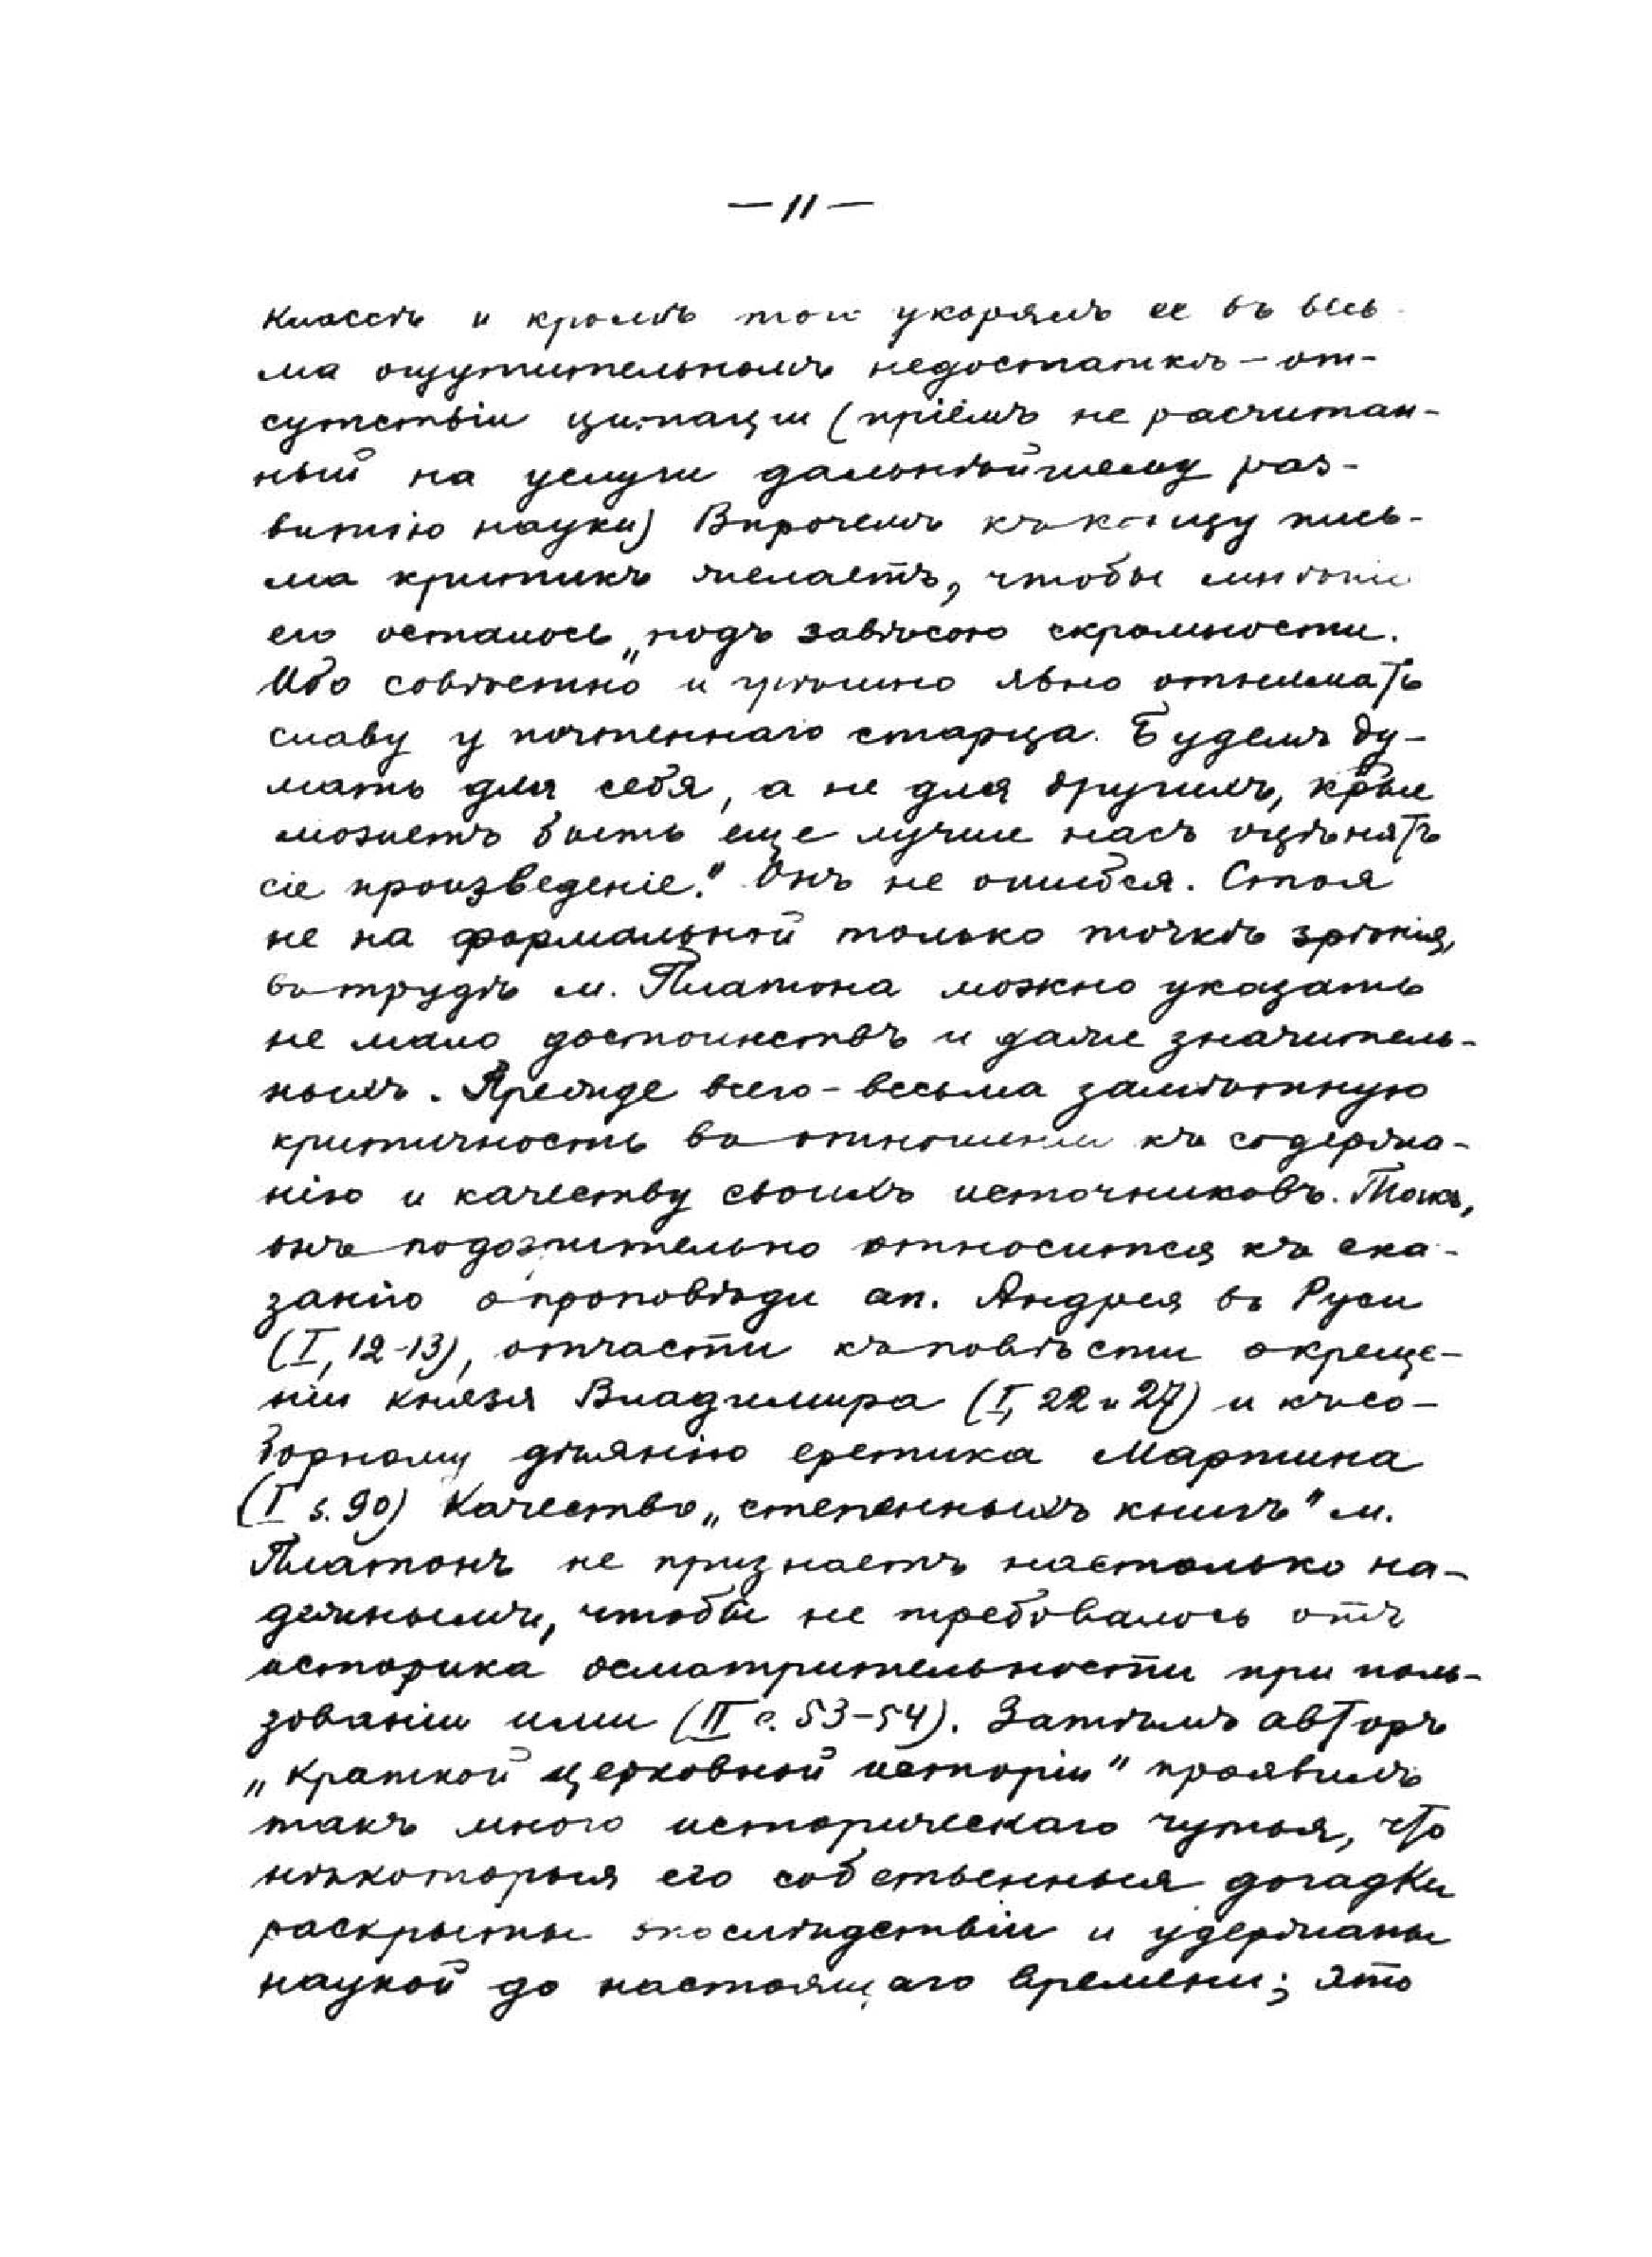 — 11 —
классѣ и кромѣ того укорялъ ее въ весь-
ма ощутительномъ недостаткѣ – от-
сутствіи цитаціи (пріемъ не расчитан-
ный на услуги дальнѣйшему раз-
витію науки) Впрочемъ къ концу пись-
ма критикъ желаетъ, чтобы мнѣніе
его осталось „подъ завѣсою скромности.
Ибо совѣстно и грѣшно явно отнимать
славу у почтеннаго старца. Будемъ ду-
мать для себя, а не для другихъ, кр̃ые
можетъ быть еще лучше насъ оцѣнятъ
сіе произведеніе." Онъ не ошибся. Стоя
не на формальной только точкѣ зрѣнія,
въ трудѣ м. Платона можно указать
не мало достоинствъ и даже значитель-
ныхъ. Прежде всего – весьма замѣтную
критичность въ отношеніи къ содержа-
нію и качеству своихъ источниковъ. Такъ,
онъ подозрительно относится къ ска-
занію о проповѣди ап. Андрея въ Руси
(I, 12-13), отчасти къ повѣсти о креще-
ніи князя Владимира (I, 22 и 27) и къ со-
борному дѣянію еретика Мартина
(I s. 90) Качество „степенныхъ книгъ" м.
Платонъ не признаетъ настолько на-
дежнымъ, чтобы не требовалось отъ
историка осмотрительности при поль-
зованіи ими (II с. 53-54). Затѣмъ авторъ
„Краткой церковной исторіи" проявилъ
такъ много историческаго чутья, что
нѣкоторыя его собственныя догадки
раскрыты впослѣдствіи и удержаны
наукой до настоящаго времени; это